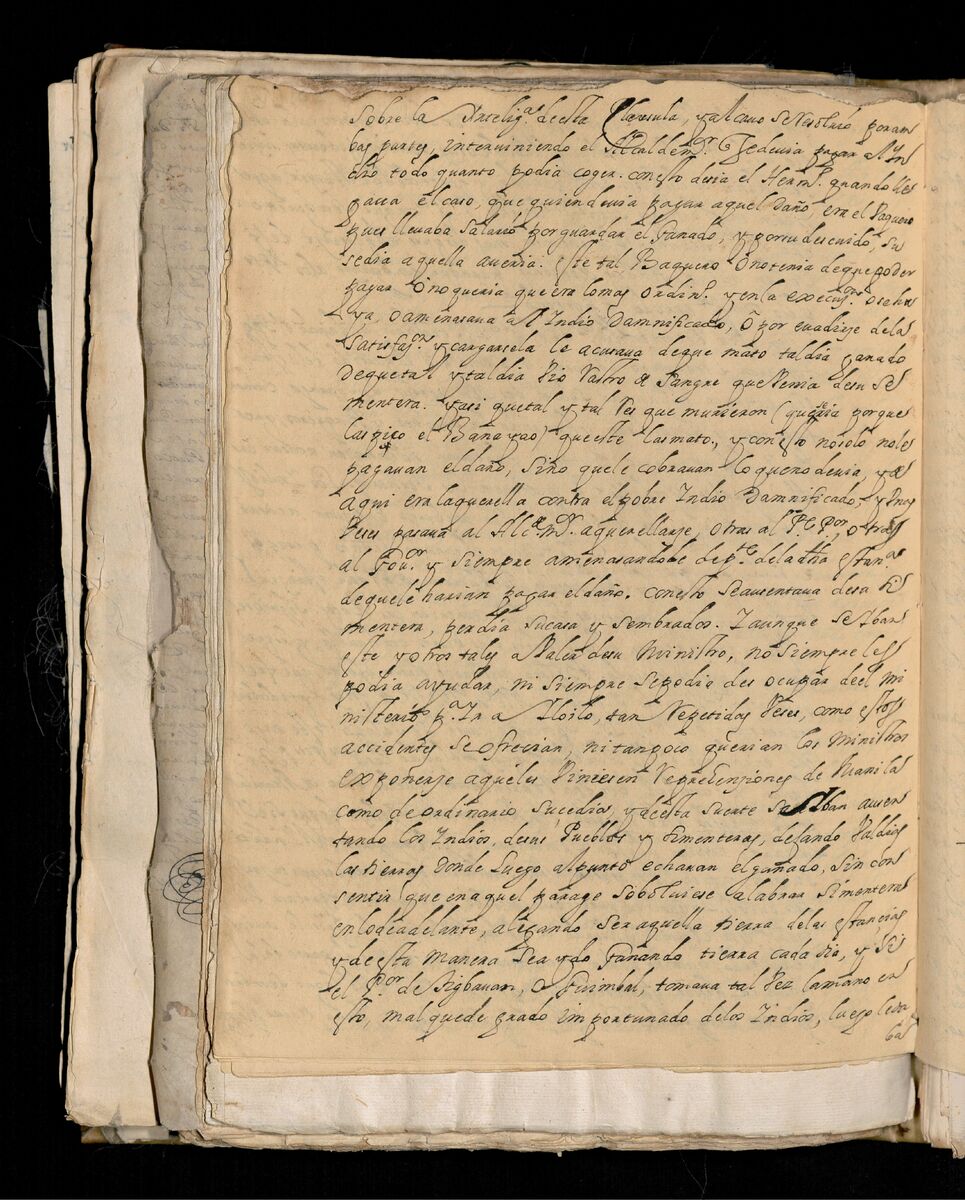 Sobre la Intelig.ª de esta Clausula, y al cavo se resolvió por am
bas partes, interviniendo el Alcalde m.ºr Se devia pagar al Yn
dio todo quanto podia coger. con esto decia el Herm.º quando lle
gava el caso, que quien devia pagar aquel Daño, era el Vaquero
pues llevaba Salario por guardar el Ganado, y por su descuido, su
sedia aquella averia. este tal Baquero O no tenia de que poder
pagar O no queria que era lo mas Ordin.º y en la execuç.on se ahu
ya, o amenasava al Indio Damnificado, O por evadirse de la
Satisfaç.on y cargarsela le acusava de que mato tal dia ganado
de que tal y tal dia Vio Rastro de Sangre que Venia de su Se
mentera. y asi que tal y tal Res que murieron (quiçá porque
las pico el Bañayao) que este las mato, y con esto no solo no le
pagavan el daño, sino que le cobravan lo que no devia, y de
aqui era la querella contra el pobre Indio Damnificado, y unas
Veses pasava al Alc.de m.ºr a querellarse, otras al P.e P.or, otras
al Gov.or y siempre amenasandole de p.te de la dha estan.ª
de que le harian pagar el daño. con esto se ausentava de su Si
mentera, perdia su casa y sembrados. Y aunque se Iban
este y otros tales a Valer de su Ministro, no siempre les
podia ayudar, ni siempre se podia desocupar de el mi
nisterio p.ª Ir a Iloilo, tan Repetidas Veses, como estos
accidentes se ofrecian, ni tampoco querian los Ministros
exponerse a que les Viniesen Reprehensiones de Manila
como de ordinario sucedia, y de esta suerte se Iban ausen
tando los Indios, de sus Pueblos y Simenteras, dexando Valdias
las tierras donde luego al punto echaran el gañado, sin con
sentir que en aquel parage se bolviese a labrar simentera
en lo de adelante, alegando ser aquella tierra de las estancias
y de esta manera Se a ydo Gañando tierra cada dia, y Si
el P.or de Tigbauan, O Guimbal, tomava tal Vez la mano en
esto, mal que de grado importunado de los Indios, luego le da
ba